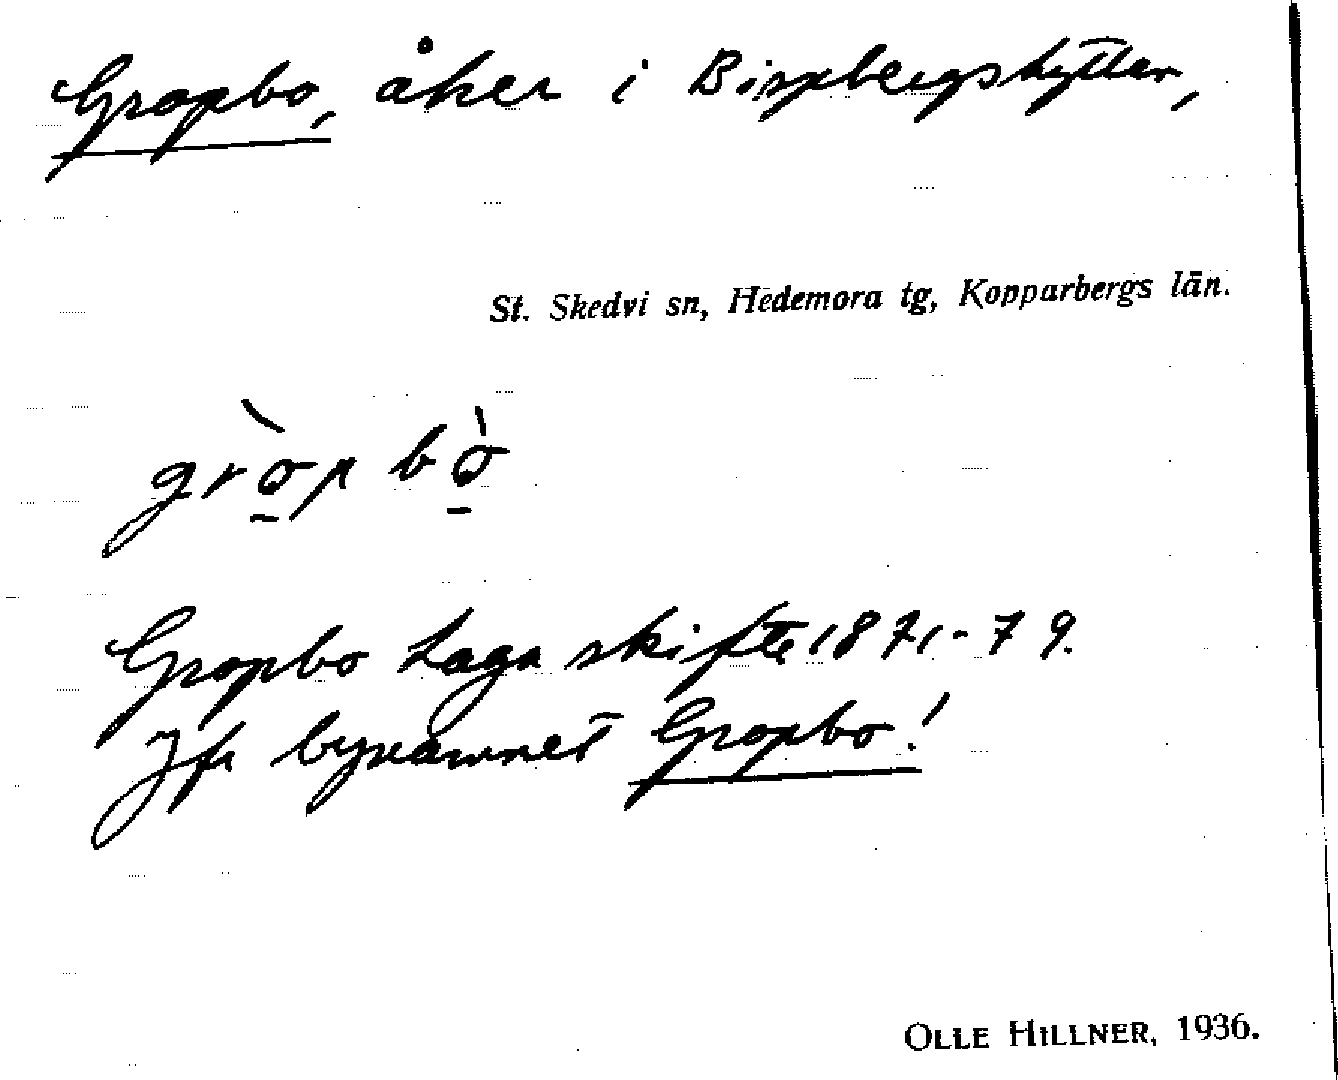 Gropbo, åker i Bispbergshyttan,
St. Skedvi sn, Hedemora tg, Kopparbergs län.
grò̱p bò̱
Gropbo Laga skifte 1871-79.
Jfr bynamnet Gropbo!
OLLE HILLNER, 1936.